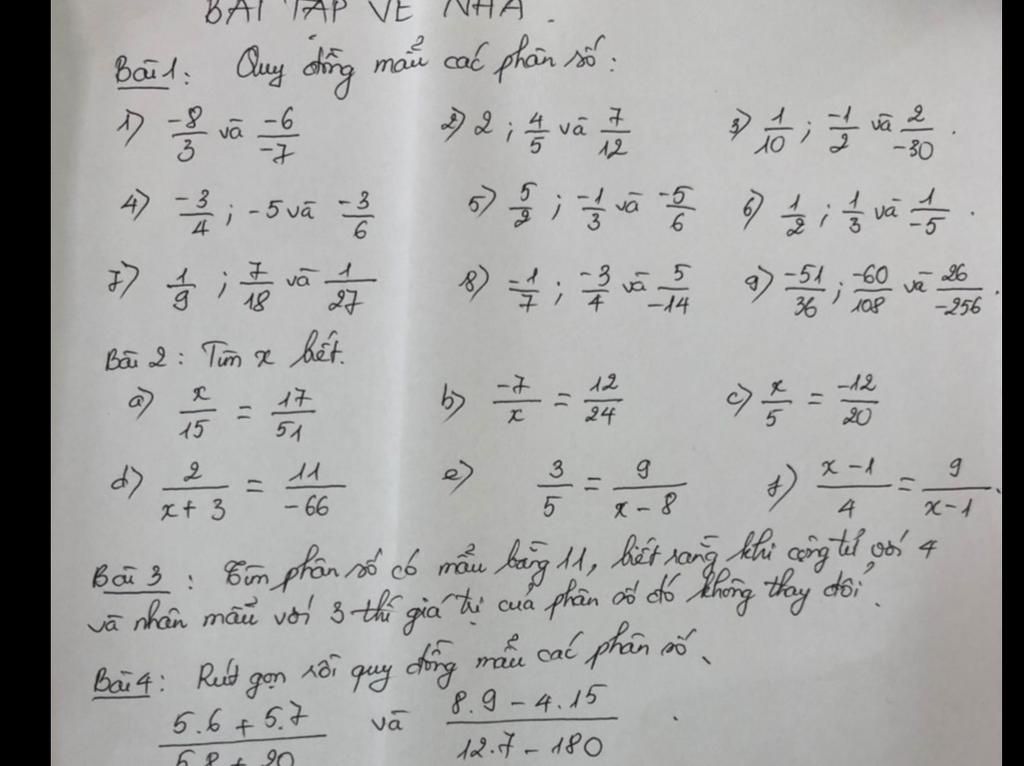 BÀI TẬP VỀ NHÀ.
Bài 1: Quy đồng mẫu các phân số:
1) -8/3 và -6/-7 2) 2 ; 4/5 và 7/12 3) 1/10 ; -1/2 và 2/-30 .
4) -3/4 ; -5 và -3/6 5) 5/2 ; -1/3 và -5/6 6) 1/2 ; 1/3 và 1/-5 .
7) 1/9 ; 7/18 và 1/27 8) -1/7 ; -3/4 và 5/-14 9) -51/36 ; -60/108 và -26/-256 .
Bài 2: Tìm x biết.
a) x/15 = 17/51 b) -7/x = 12/24 c) x/5 = -12/20
d) 2/(x+3) = 11/-66 e) 3/5 = 9/(x-8) f) (x-1)/4 = 9/(x-1) .
Bài 3: Tìm phân số có mẫu bằng 11, biết rằng khi cộng tử với 4
và nhân mẫu với 3 thì giá trị của phân số đó không thay đổi.
Bài 4: Rút gọn rồi quy đồng mẫu các phân số.
(5.6 + 5.7)/(5.8 + 20) và (8.9 - 4.15)/(12.7 - 180) .